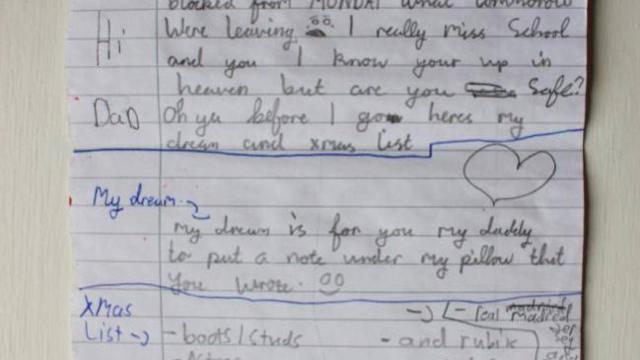 blocked from MONDAY what tommorow
Hi Were leaving I really miss School
and you I know your up in
heaven but are you Safe?
DaD Oh ya before I go heres my
dream and xmas list
My dream
my dream is for you my daddy
to put a note under my pillow that
you wrote.
Xmas
List → - boots/studs
→ - real madrid
- and rubik